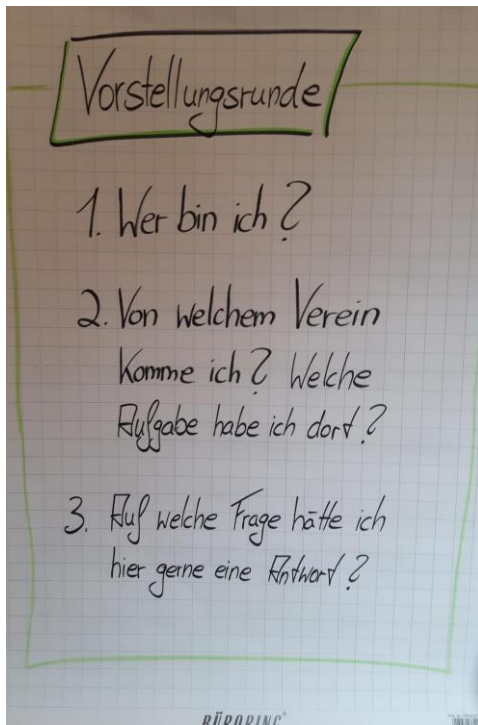 Vorstellungsrunde
1. Wer bin ich?
2. Von welchem Verein
Komme ich? Welche
Aufgabe habe ich dort?
3. Auf welche Frage hätte ich
hier gerne eine Antwort?
BÜRORING